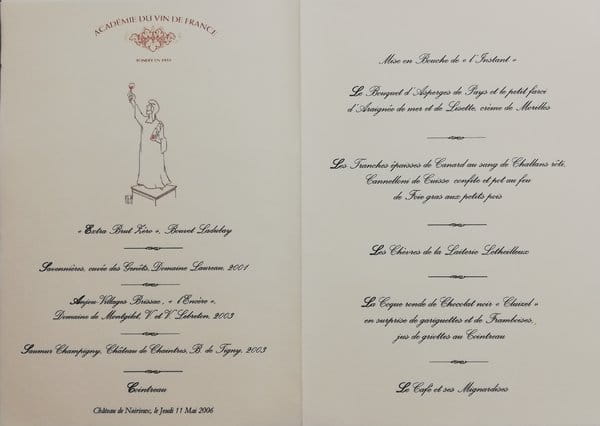 ACADÉMIE DU VIN DE FRANCE
FONDÉE EN 1933
« Extra Brut Zéro », Bouvet Ladubay
Savennières, cuvée des Genêts, Domaine Laureau, 2001
Anjou Villages Brissac, « l'Encère »,
Domaine de Montgilet, V. et V. Lebreton, 2003
Saumur Champigny, Château de Chaintres, B. de Tigny, 2003
Cointreau
Château de Noirieux, le Jeudi 11 Mai 2006
Mise en Bouche de « l'Instant »
Le Bouquet d'Asperges de Pays et le petit farci
d'Araignée de mer et de Lisette, crème de Morilles
Les Tranches épaisses de Canard au sang de Challans rôti,
Cannelloni de Cuisse confite et pot au feu
de Foie gras aux petits pois
Les Chèvres de la Laiterie Lotheilleux
La Coque ronde de Chocolat noir « Cluizel »
en surprise de gariguettes et de Framboises,
jus de griottes au Cointreau
Le Café et ses Mignardises